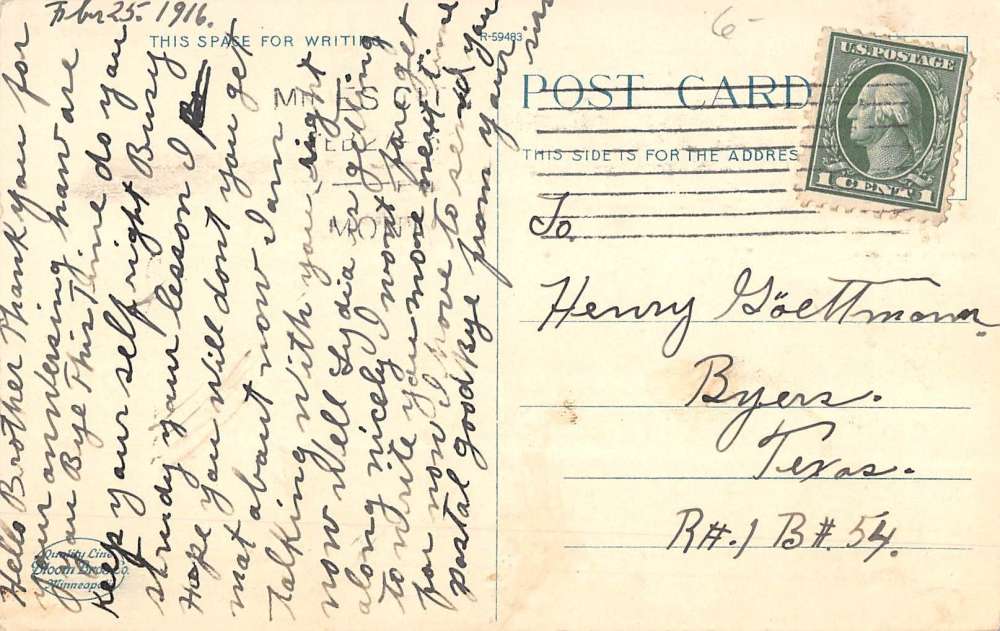 Febr 25. 1916.
THIS SPACE FOR WRITING
R-59483
Hello Brother Thank you for
your ansersing. how are
you Bye This Thime do you
keep your self right Busy
study your lesson I
Hope you will dont you get
mat about now I am
talking with you right
now Well Lydia is getting
along nicely I wont forget
to write you more next time
for now I have to send you
postal good Bye from your sis
Quality Line
Bloom Bros. Co.
Minneapolis
MILES CI
MONT
POST CARD
THIS SIDE IS FOR THE ADDRES
U.S. POSTAGE
1 CENT 1
6-
To
Henry Göettmann
Byers.
Texas.
R#.1 B#.54.